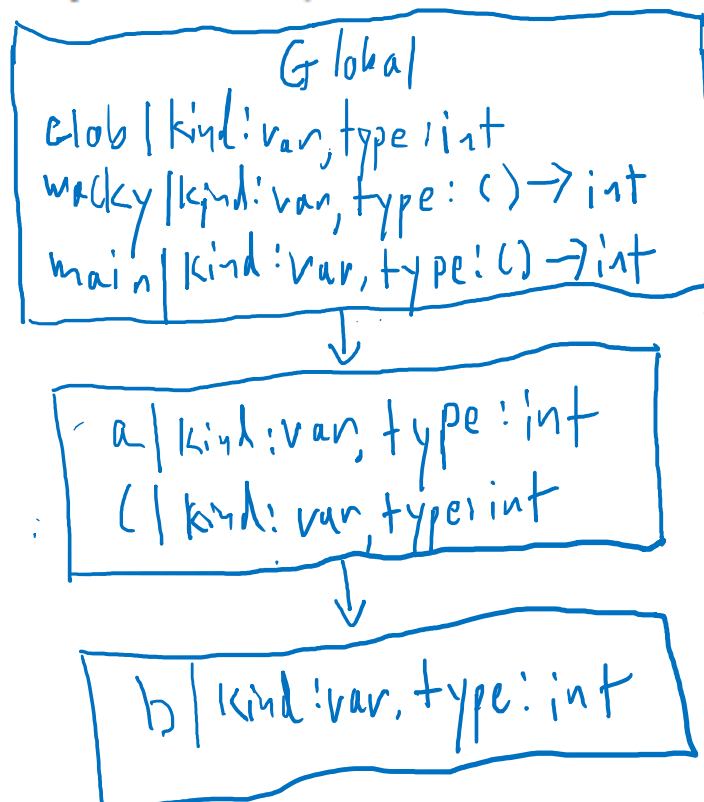 Global
glob | kind: var, type: int
wacky | kind: var, type: () → int
main | kind: var, type: () → int
a | kind: var, type: int
c | kind: var, type: int
b | kind: var, type: int